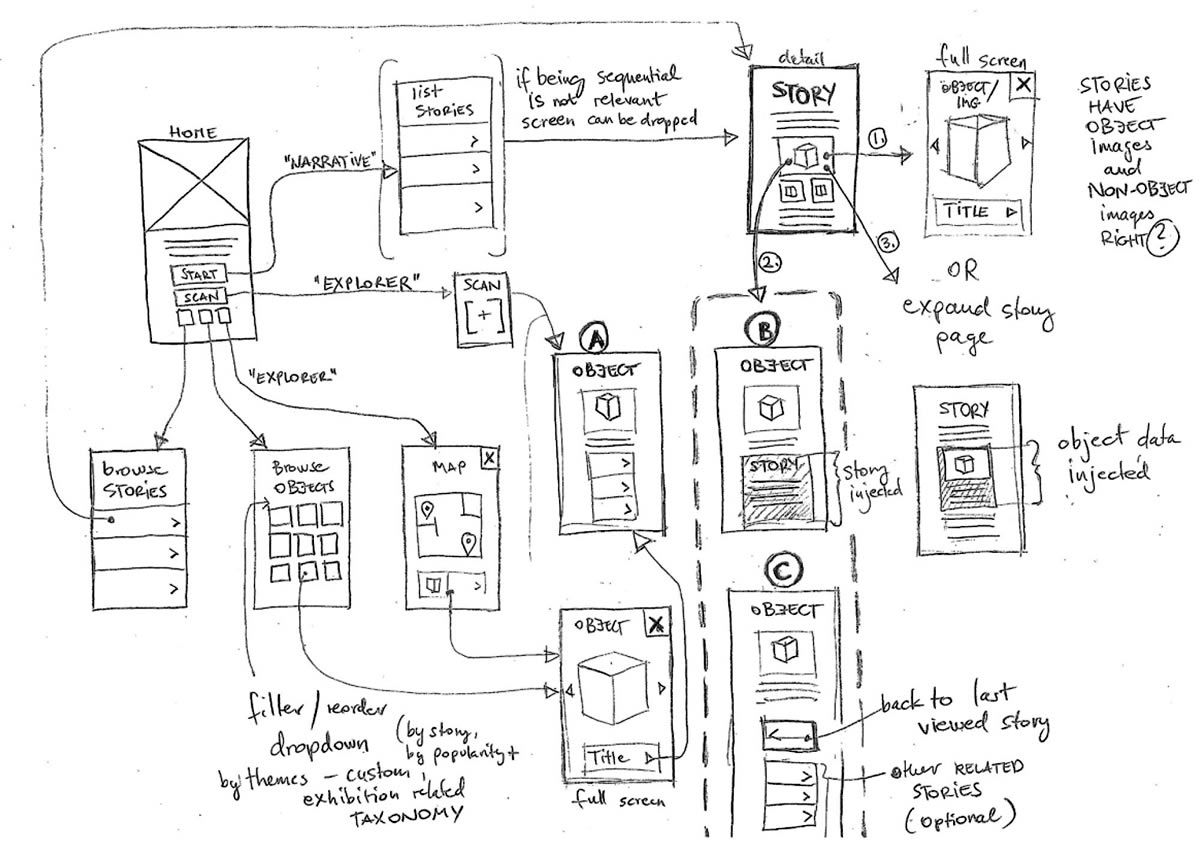 HOME
START
SCAN
"NARRATIVE"
"EXPLORER"
"EXPLORER"
list
STORIES
if being sequential
is not relevant
screen can be dropped
detail
STORY
1.
2.
3.
full screen
OBJECT/
IMG
X
TITLE
STORIES
HAVE
OBJECT
images
and
NON-OBJECT
images
RIGHT?
OR
expand story
page
SCAN
[+]
A
OBJECT
B
OBJECT
STORY
story
injected
STORY
object data
injected
browse
STORIES
BROWSE
OBJECTS
MAP
X
C
OBJECT
back to last
viewed story
other RELATED
STORIES
(optional)
OBJECT
X
Title
full screen
filter/reorder
dropdown
(by story,
by popularity +
by themes – custom,
exhibition related
TAXONOMY